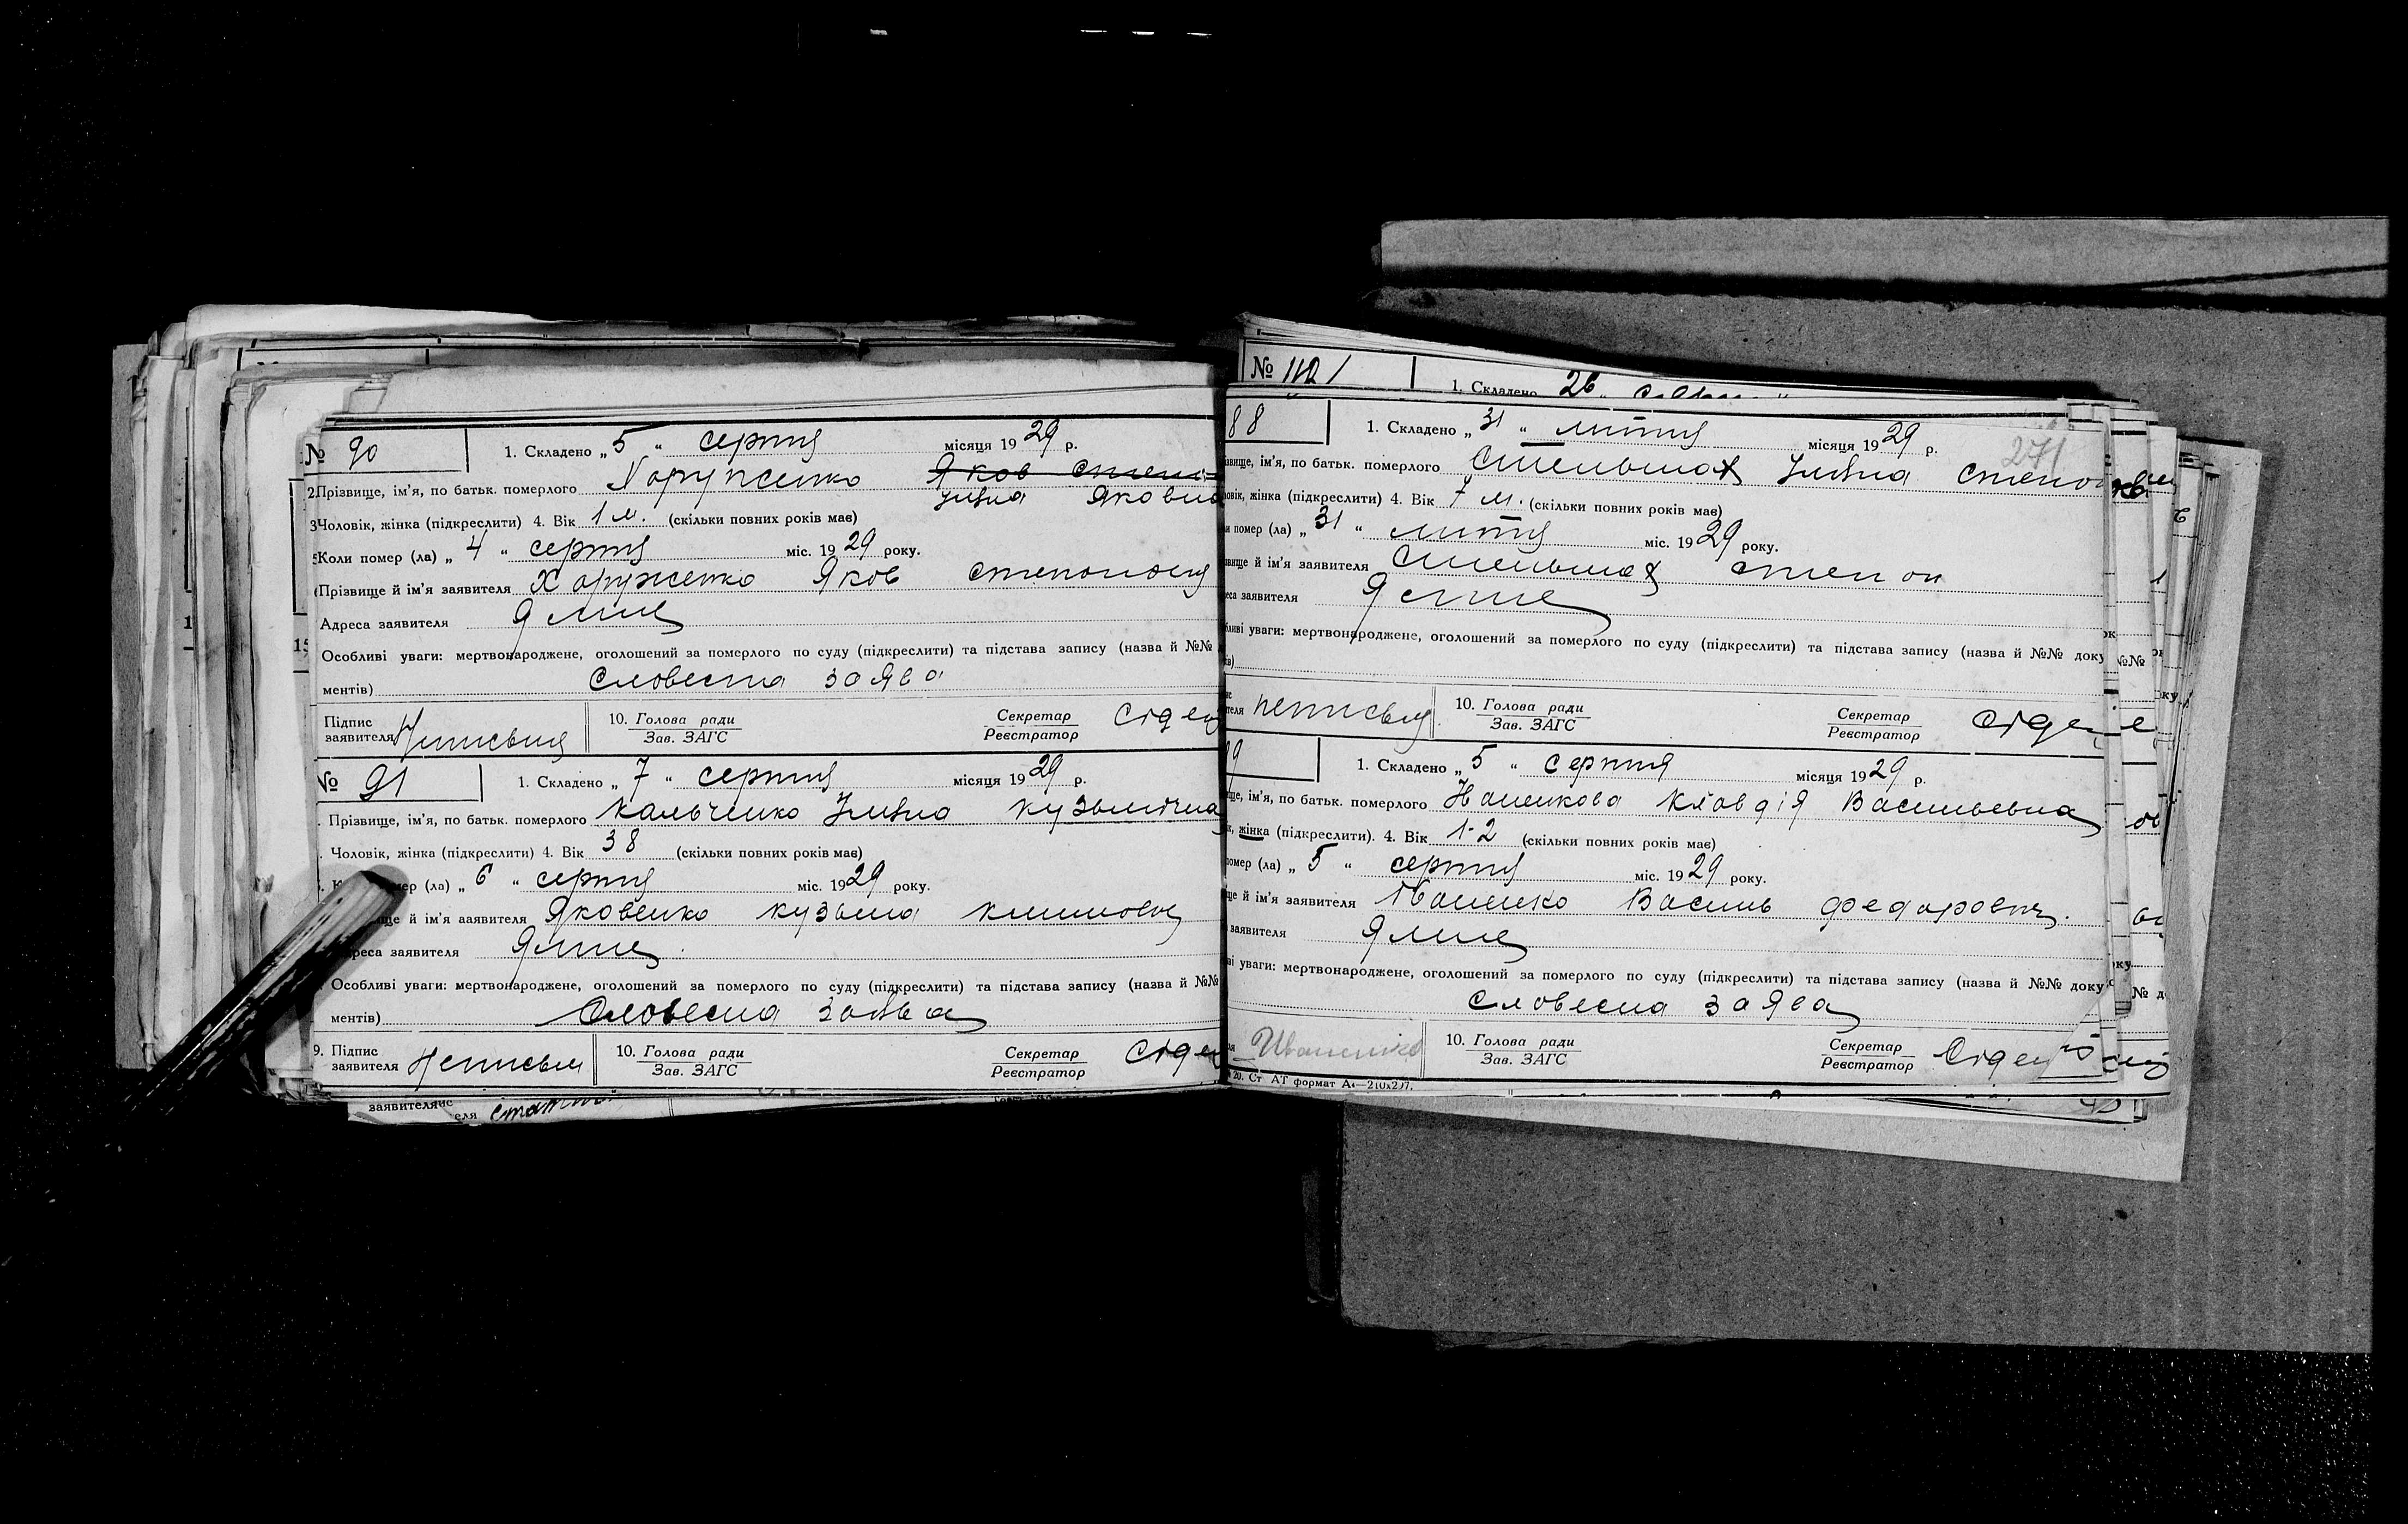 № 90
1. Складено „5“ серпня місяця 1929 р.
2. Прізвище, ім'я, по батьк. померлого Хоруженко Яков Степа
Уляна Яковна
3 Чоловік, жінка (підкреслити) 4. Вік 1 м. (скільки повних років має)
5 Коли помер (ла) „4“ серпня міс. 1929 року.
Прізвище й ім'я заявителя Хоруженко Яков Степонович
Адреса заявителя
Особливі уваги: мертвонароджене, оголошений за померлого по суду (підкреслити) та підстава запису (назва й №№
ментів) Словесна заява
Підпис
заявителя Неписьмен
10. Голова ради
Зав. ЗАГС
Секретар
Реєстратор
№ 91
1. Складено „7“ серпня місяця 1929 р.
Прізвище, ім'я, по батьк. померлого Кальченко Уляна Кузьмінична
Чоловік, жінка (підкреслити) 4. Вік 38 (скільки повних років має)
мер (ла) „6“ серпня міс. 1929 року.
ще й ім'я заявителя Яковенко Кузьма Климович
реса заявителя
Особливі уваги: мертвонароджене, оголошений за померлого по суду (підкреслити) та підстава запису (назва й №№
ментів) Словесна заява
9. Підпис
заявителя Неписьмен
10. Голова ради
Зав. ЗАГС
Секретар
Реєстратор
заявителя
№
1. Складено 26
88
1. Складено „31“ липня місяця 1929 р.
271
звище, ім'я, по батьк. померлого Стельмах Уляна Степон
овік, жінка (підкреслити) 4. Вік 7 м. (скільки повних років має)
и помер (ла) „31“ липня міс. 1929 року.
звище й ім'я заявителя Стельмах Степон
еса заявителя
бливі уваги: мертвонароджене, оголошений за померлого по суду (підкреслити) та підстава запису (назва й №№ доку
ів)
теля неписьмен
10. Голова ради
Зав. ЗАГС
Секретар
Реєстратор
9
1. Складено „5“ серпня місяця 1929 р.
ще, ім'я, по батьк. померлого Іваненкова Клавдія Васильевна
к, жінка (підкреслити). 4. Вік 1-2 (скільки повних років має)
омер (ла) „5“ серпня міс. 1929 року.
ще й ім'я заявителя Іваненко Василь Федорович.
заявителя
ві уваги: мертвонароджене, оголошений за померлого по суду (підкреслити) та підстава запису (назва й №№ доку
Словесна заява
Иваненко
10. Голова ради
Зав. ЗАГС
Секретар
Реєстратор
20. Ст АТ формат А4—210х297.